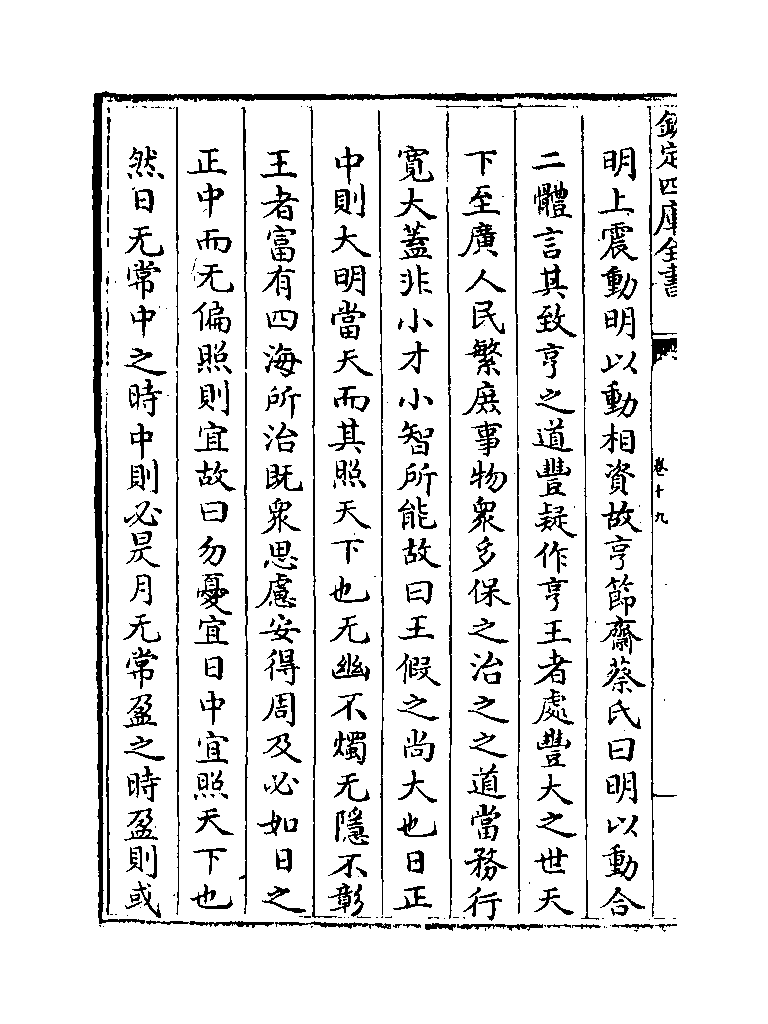 欽定四庫全書
卷十九
明上震動明以動相資故亨節齋蔡氏曰明以動合
二體言其致亨之道豐疑作亨王者處豐大之世天
下至廣人民繁庶事物衆多保之治之之道當務行
寛大蓋非小才小智所能故曰王假之尚大也日正
中則大明當天而其照天下也无幽不燭无隱不彰
王者富有四海所治既衆思慮安得周及必如日之
正中而无偏照則宜故曰勿憂宜日中宜照天下也
然日无常中之時中則必昃月无常盈之時盈則或